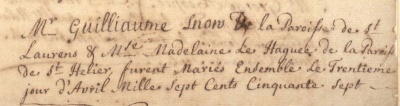 Mr Guilliaume Snow De la Paroisse de St
Laurens & Mse Madelaine Le Haguel de la Paroisse
de St Helier, furent Mariés Ensemble Le Trentieme
jour d'Avril Mille Sept Cents Cinquante Sept